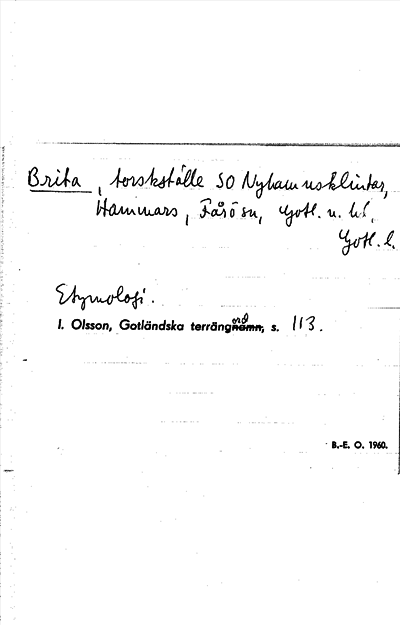 Brita, torskställe SO Nyhamnsklintar,
Hammars, Fårö sn, Gotl. n. hd,
Gotl. l.
Etymologi.
I. Olsson, Gotländska terrängnamn, ord s. 113.
B.-E. O. 1960.